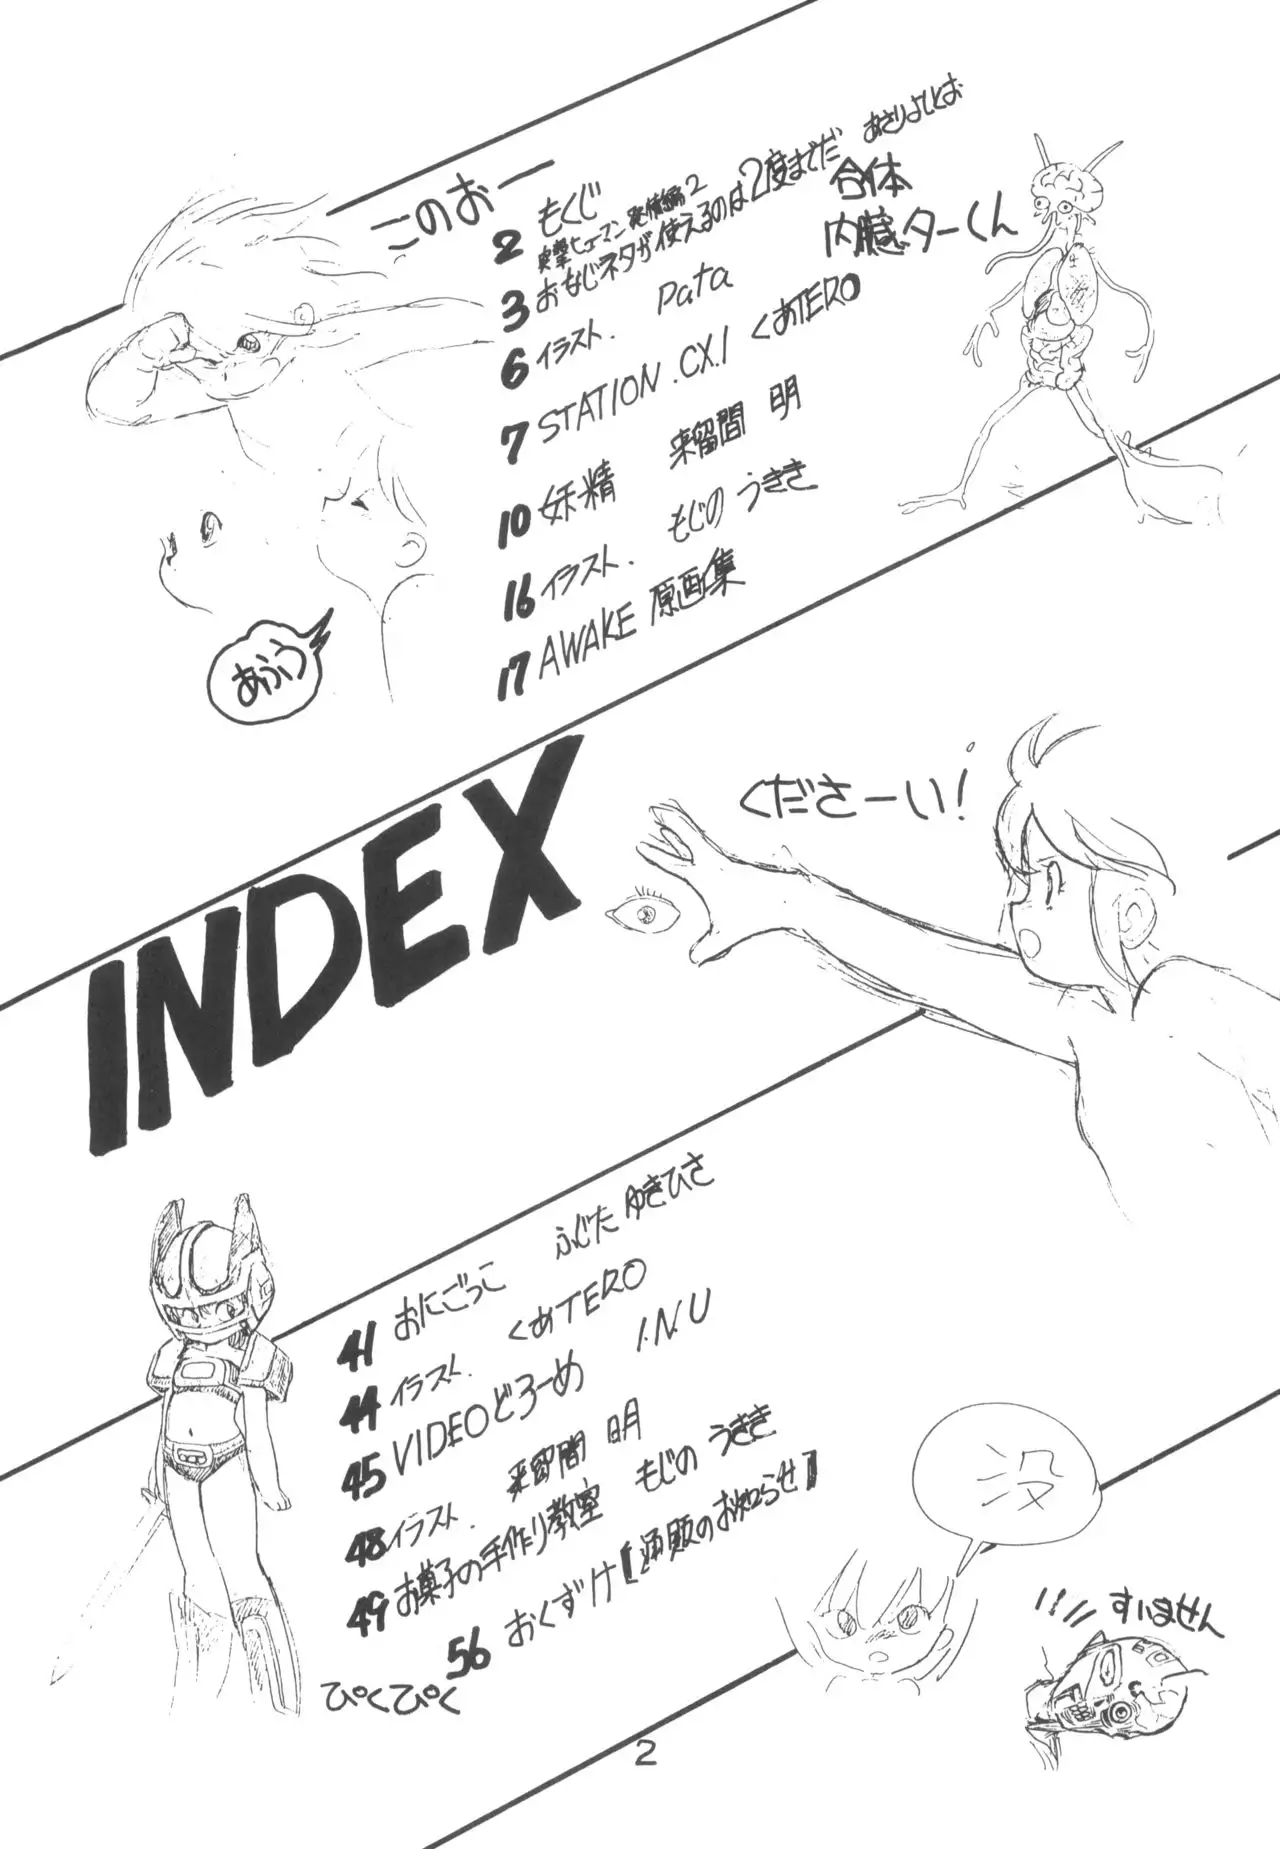 このおー
2 もくじ
突撃ヒューマン 発憤編2
3 おなじネタが使えるのは2度までだ あさりよしとお
6 イラスト. Pata
7 STATION.CX.1 くあTERO
10 妖精 来留間 明
16 イラスト. もじの うきき
17 AWAKE 原画集
合体
内臓ターくん
あふう
INDEX
くださーい!
41 おにごっこ ふじた ゆきひさ
44 イラスト. くあTERO
45 VIDEOどろーめ I.N.U
48 イラスト. 来留間 明
49 お菓子の手作り教室 もじの うきき
56 おくずけ【通販のお知らせ】
ぴくぴく
没
すいません
2